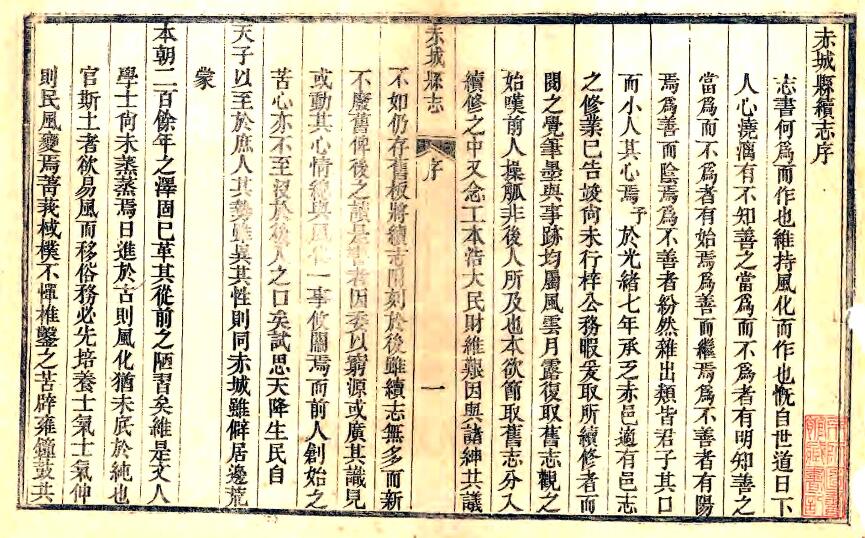 赤城縣續志序
志書何為而作也維持風化而作也慨自世道日下
人心澆漓有不知善之當為而不為者有明知善之
當為而不為者有始焉為善而繼焉為不善者有陽
焉為善而陰焉為不善者紛然雜出類皆君子其口
而小人其心焉予於光緒七年承乏赤邑適有邑志
之修業已告竣尚未行梓公務暇爰取所續修者而
閱之覺筆墨與事跡均屬風雲月露復取舊志觀之
始嘆前人操觚非後人所及也本欲節取舊志分入
續修之中又念工本浩大民財維艱因與諸紳共議
赤城縣志 序 一
不如仍存舊板將續志開刻於後雖續志無多而新
不廢舊俾後之讀是書者因委以窮源或廣其識見
或動其心情總與風化一事攸關焉而前人創始之
苦心亦不至沒於後人之口矣試思天降生民自
天子以至於庶人其勢雖異其性則同赤城雖僻居邊荒
蒙
本朝二百餘年之澤固已革其從前之陋習矣維是文人
學士尚未蒸蒸焉日進於古則風化猶未底於純也
官斯土者欲易風而移俗務必先培養士氣士氣伸
則民風變焉菁莪棫樸不憚椎鑿之苦辟雍鐘鼓共